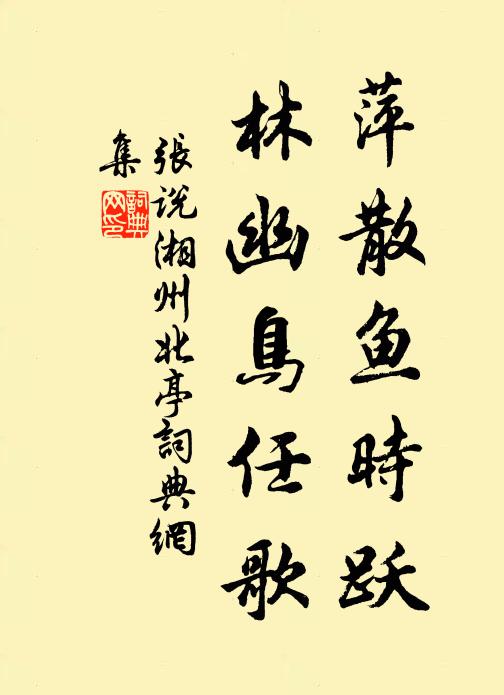 萍散鱼時跃
林幽鳥任歌
張说湘州北亭詞典網
集
詞典
网印